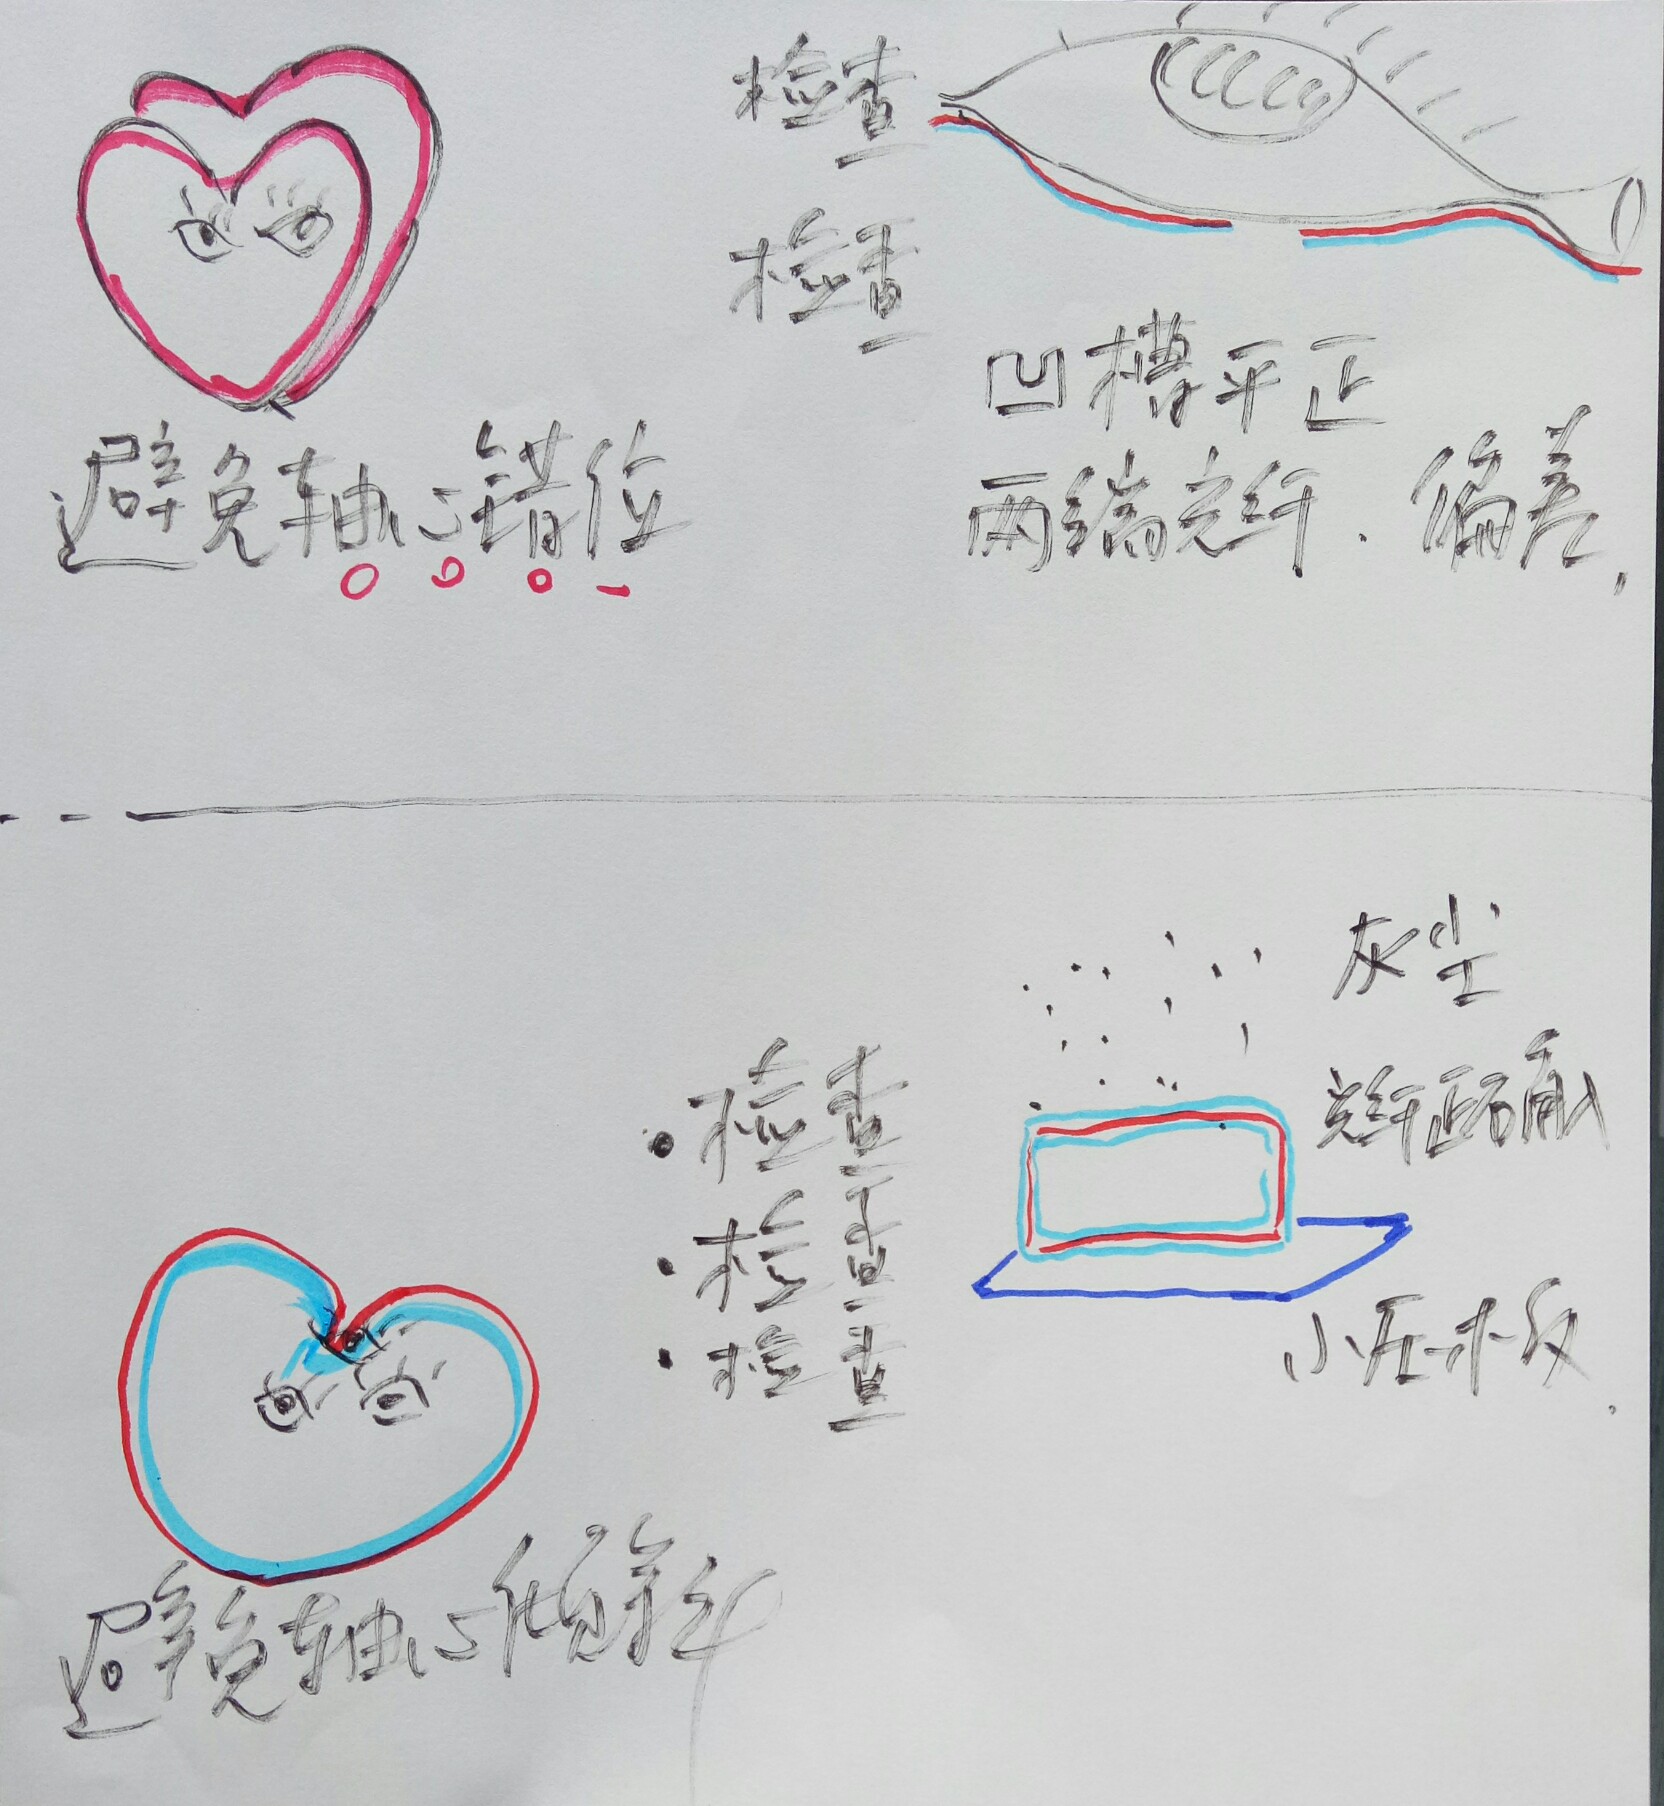 检查
检查
凹槽平正
两端光纤、偏差,
避免轴心错位
灰尘
检查
检查
检查
光纤是否
小压板
避免轴心倾斜